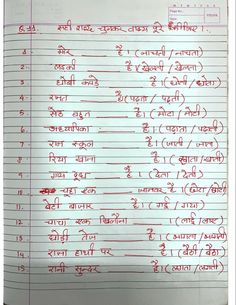 प्र.11. सही शब्द चुनकर वाक्य पूरे कीजिए :-
1- मोर ______ है । (नाचती / नाचता)
2- लड़की ______ है । (खेलती / खेलता)
3- धोबी कपड़े ______ है । (धोती / धोता)
4- रमन ______ है । (पढ़ता / पढ़ती)
5- सेठ बहुत ______ है । (मोटा / मोटी)
6- अध्यापिका ______ है । (पढ़ाता / पढ़ाती)
7- राम स्कूल ______ है । (जाता / जाती)
8- रिया खाना ______ है । (खाता / खाती)
9- गाय दूध ______ है । (देता / देती)
10- चूहा एक ______ जानवर है । (छोटा / छोटी)
11- बेटी बाजार ______ है । (गई / गया)
12- चाचा एक खिलौना ______ । (लाई / लाए)
13- घोड़ी तेज ______ है । (भागता / भागती)
14- राजा हाथी पर ______ है । (बैठी / बैठा)
15- रानी सुन्दर ______ है । (लगता / लगती)